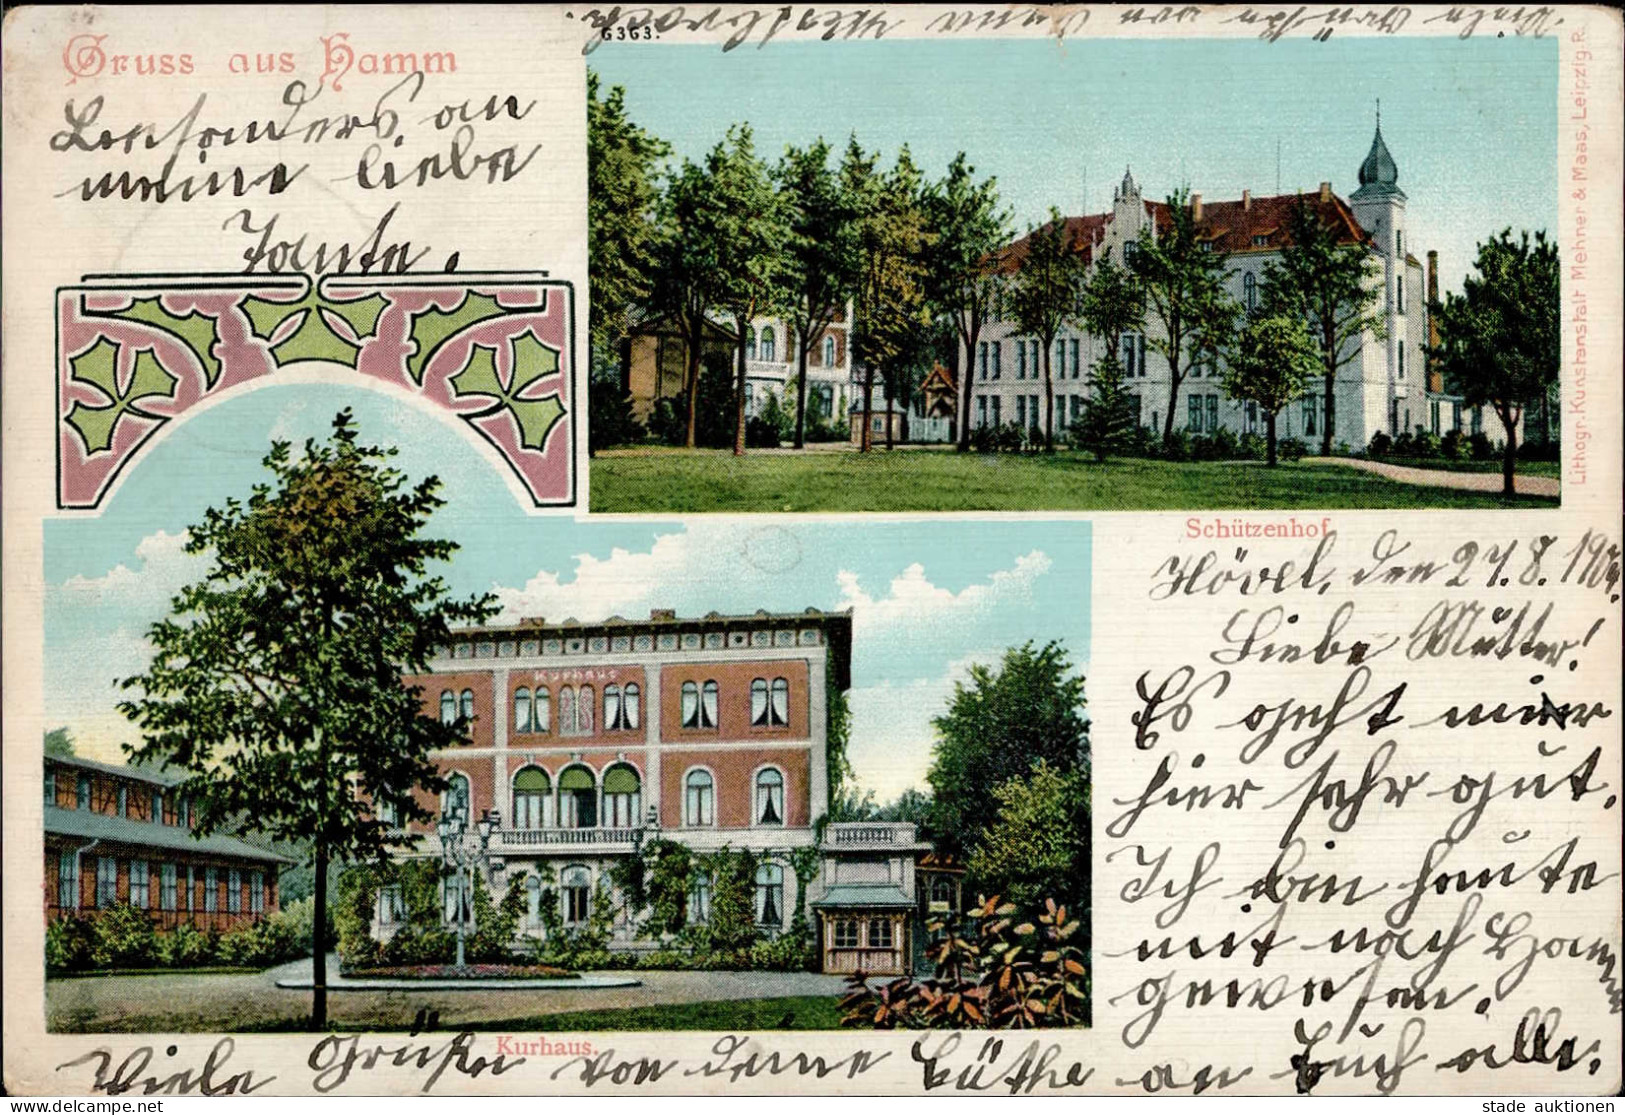 Gruss aus Hamm
Besonders an
meine liebe
Tante.
G 363.
Viele Grüße von
Lithogr. Kunstanstalt Mehner & Maas, Leipzig R.
Schützenhof
Hövel, den 27.8.1904.
Liebe Mutter!
Es geht mir
hier sehr gut.
Ich bin heute
mit nach Hamm
gewesen.
Kurhaus
Kurhaus.
Viele Grüße von deine Käthe an Euch alle.
stade auktionen